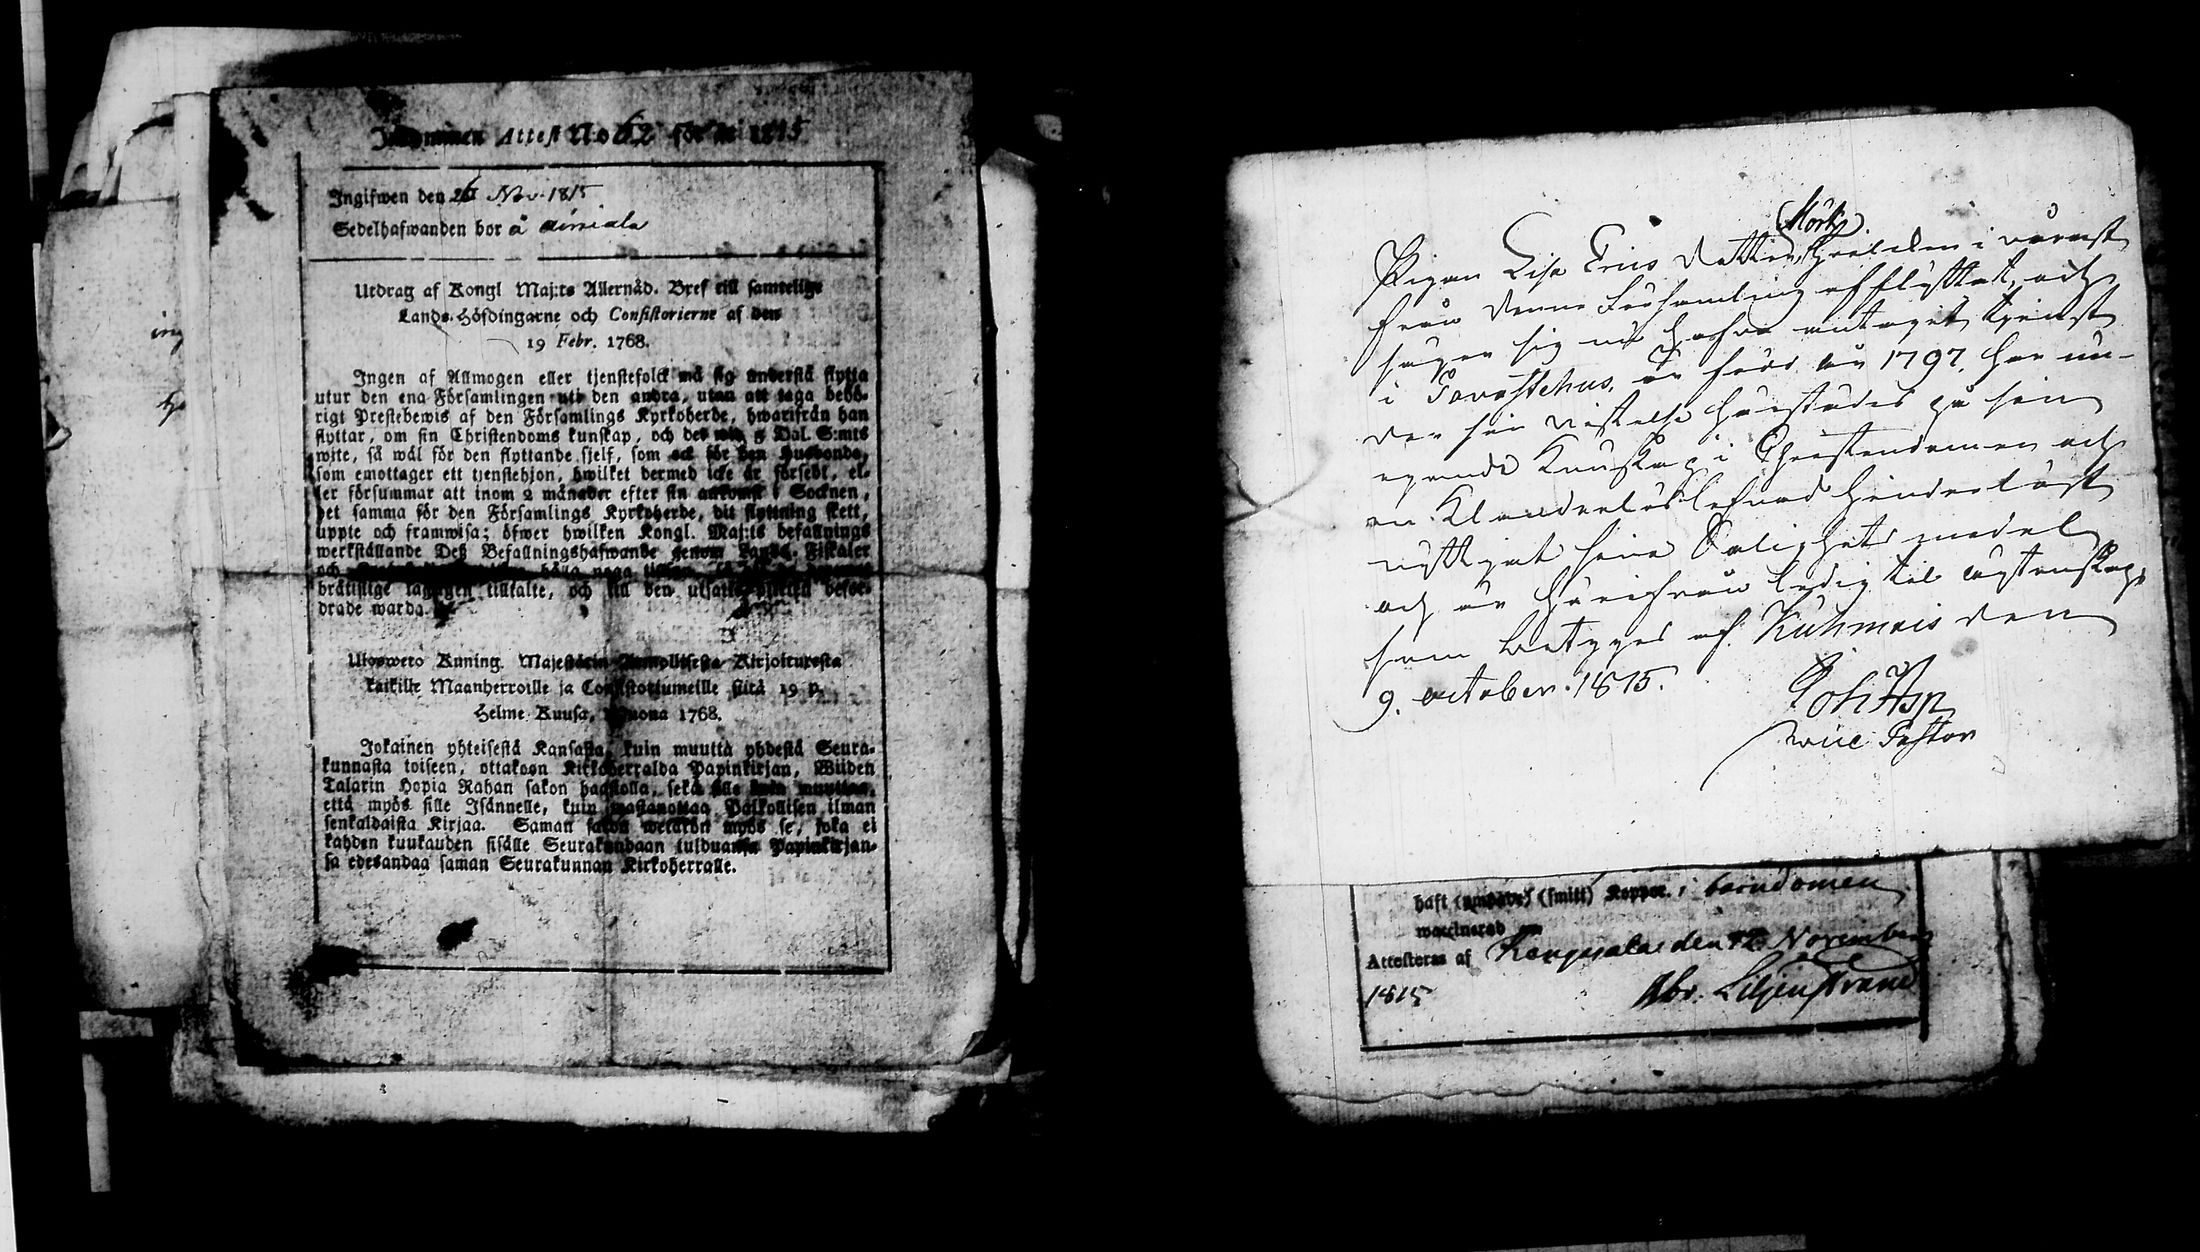 ing
Inkommen Attest No 62 för år 1815
Ingifwen den 26 Nov. 1815
Sedelhafwanden bor å
Utdrag af Kongl Maj:ts Allernåd. Bref till samtelige
Lands-Höfdingarne och Consistorierne af den
19 Febr. 1768.
Ingen af Allmogen eller tjenstefolck må sig understå flytta
utur den ena Församlingen uti den andra, utan att taga behö-
rigt Prestebewis af den Församlings Kyrkoherde, hwarifrån han
flyttar, om sin Christendoms kunskap, och det wid 5 Dal. S:mts
wite, så wäl för den flyttande sjelf, som ock för den Husbonde,
som emottager ett tjenstehjon, hwilket dermed icke är försedt, el-
ler försummar att inom 2 månader efter sin ankomst i Socknen,
det samma för den Församlings Kyrkoherde, dit flyttning skett,
uppte och framwisa; öfwer hwilken Kongl. Maj:ts befallnings
werkställande Deß Befallningshafwande genom Lands-Fiskaler
och hålla noga
bräflige tillfalte, och till den utsatte befor-
drade warda.
Uloswero Kuning. Majestätin Armollisesta Kirjoituxesta
kaikille Maanherroille ja Consistoriumeille siitä 19 p.
Helme Kuusa, Wuona 1768.
Jokainen yhteisestä Kansasta, kuin muutta yhdestä Seura-
kunnasta toiseen, ottakoon Kirkoherralda Papinkirjan, Wiiden
Talarin Hopia Rahan sakon haastolla, sekä sille kuin muuttaa,
että myös sille Isännelle, kuin wastanottaa Palkollisen ilman
senkaldaista Kirjaa. Saman sakon wetäkön myös se, joka ei
kahden kuukauden sisälle Seurakundaan tulduansa Papinkirjan-
sa edesandaa saman Seurakunnan Kirkoherralle.
Mörk
Pigan Lisa Ericsdotter, hwilken i wårast
från denne Församling afflyttat, och
säger sig nu hafva antagit tjenst
i Tavastehus, är född år 1797, har un-
der sin vistelse härstädes på sin
egande Kunskap i Christendomen och
en Klanderlös lefnad hinderlöst
nyttjat sine Salighets medel
och är härifrån ledig til ägtenskap,
som betyges af Kuhmois den
9. october. 1815. Joh Asp
vice Pastor
haft (smitt) Koppor. i barndomen
waccinerad
Attesteras af Kangasala den 12 November
1815 Abr. Liljenstrand